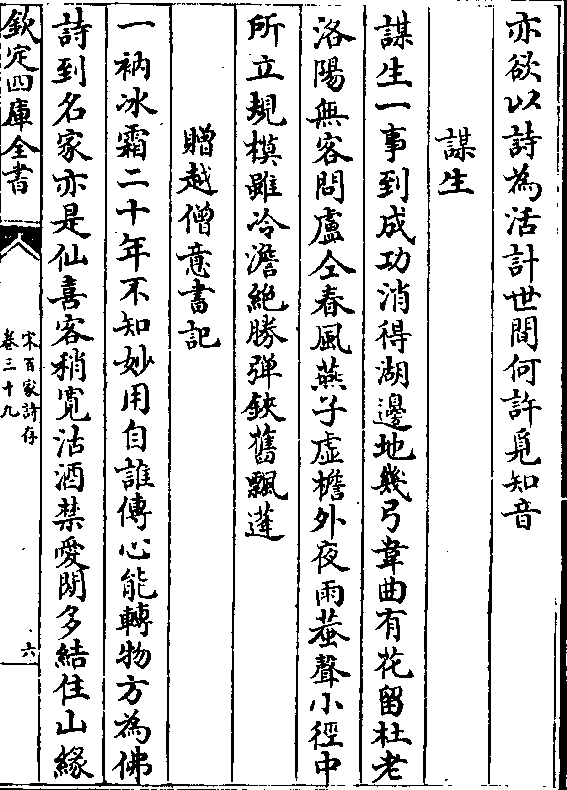 亦欲以詩為活計世間何許覓知音
謀生
謀生一事到成功消得湖邊地幾弓韋曲有花留杜老
洛陽無客問盧仝春風燕子虛檐外夜雨蛬聲小徑中
所立規模雖冷澹絶勝彈鋏舊飄蓬
贈越僧意書記
一衲冰霜二十年不知妙用自誰傳心能轉物方為佛
詩到名家亦是仙喜客稍寛沽酒禁愛閒多結住山緣
欽定四庫全書
宋百家詩存
卷三十九
六